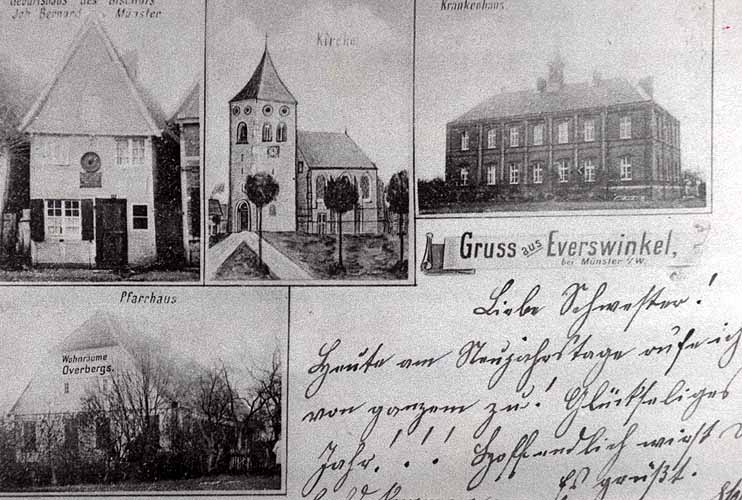 Geburtshaus des Bischofs
Joh. Bernard Münster
Kirche
Krankenhaus
Gruss aus Everswinkel,
bei Münster i/W.
Pfarrhaus
Wohnräume
Overbergs.
Liebe Schwester!
Heute am Neujahrstage rufe ich
von ganzem zu! Glückseliges
Jahr!!! Hoffendlich wirst
Es grüßt.